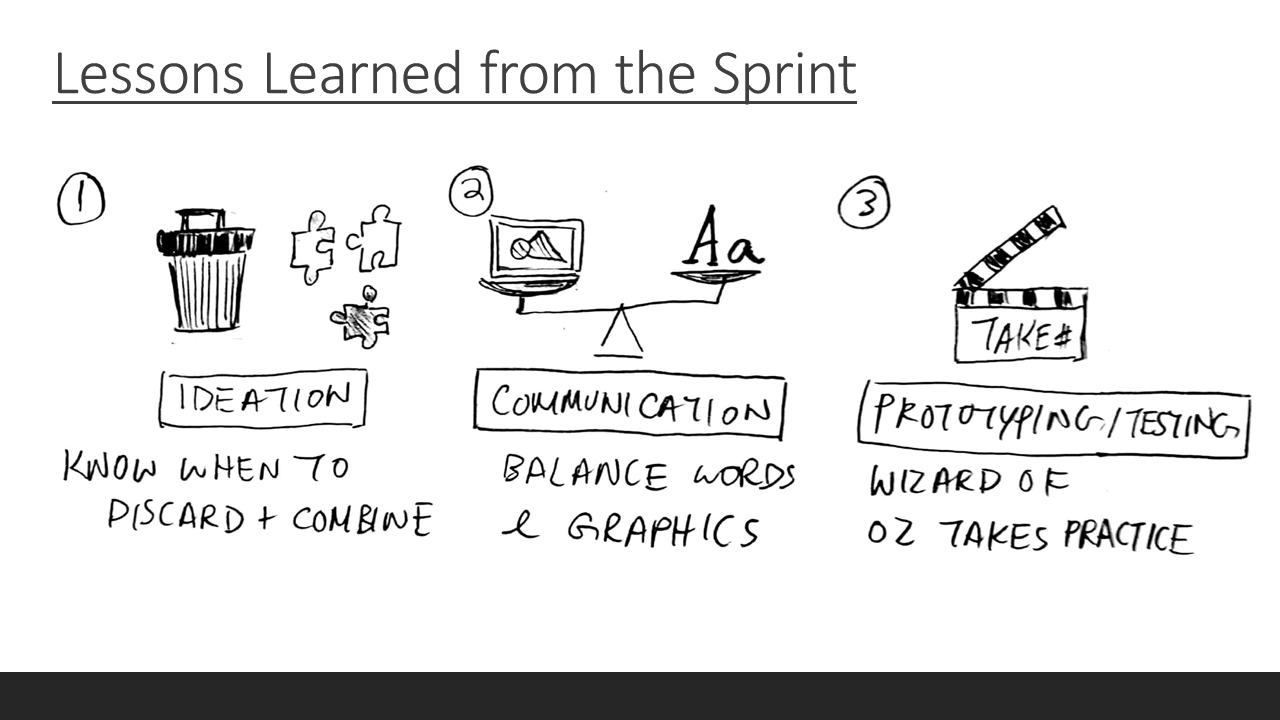 Lessons Learned from the Sprint
1
IDEATION
KNOW WHEN TO
DISCARD + COMBINE
2
Aa
COMMUNICATION
BALANCE WORDS
& GRAPHICS
3
TAKE#
PROTOTYPING/TESTING
WIZARD OF
OZ TAKES PRACTICE